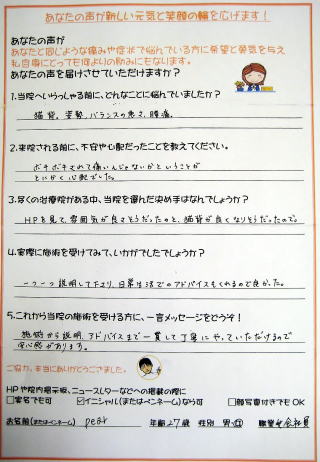 あなたの声が新しい元気と笑顔の輪を広げます！
あなたの声が
あなたと同じような痛みや症状で悩んでいる方に希望と勇気を与え
私自身にとっても何よりの励みにもなります。
あなたの声を届けさせていただけますか？
1.当院へいらっしゃる前に、どんなことに悩んでいましたか？
猫背、姿勢、バランスの悪さ、腰痛。
2.来院される前に、不安や心配だったことを教えてください。
ボキボキされて痛いんじゃないかということが
とにかく心配でした。
3.多くの治療院がある中、当院を選んだ決め手はなんでしょうか？
HPを見て、雰囲気が良さそうだったのと、猫背が良くなりそうだったので。
4.実際に施術を受けてみて、いかがでしたでしょうか？
一つ一つ説明して下さり、日常生活でのアドバイスもくれるので良かった。
5.これから当院の施術を受ける方に、一言メッセージをどうぞ！
施術から説明、アドバイスまで一貫して丁寧にやっていただけるので
安心感があります。
ご協力、本当にありがとうございました。
HPや院内掲示板、ニュースレターなどへの掲載の際に
□実名でも可 ☑イニシャル(またはペンネーム)なら可 □顔写真付きでもOK
お名前(またはペンネーム) pear 年齢27歳 性別 男・女 職業 会社員